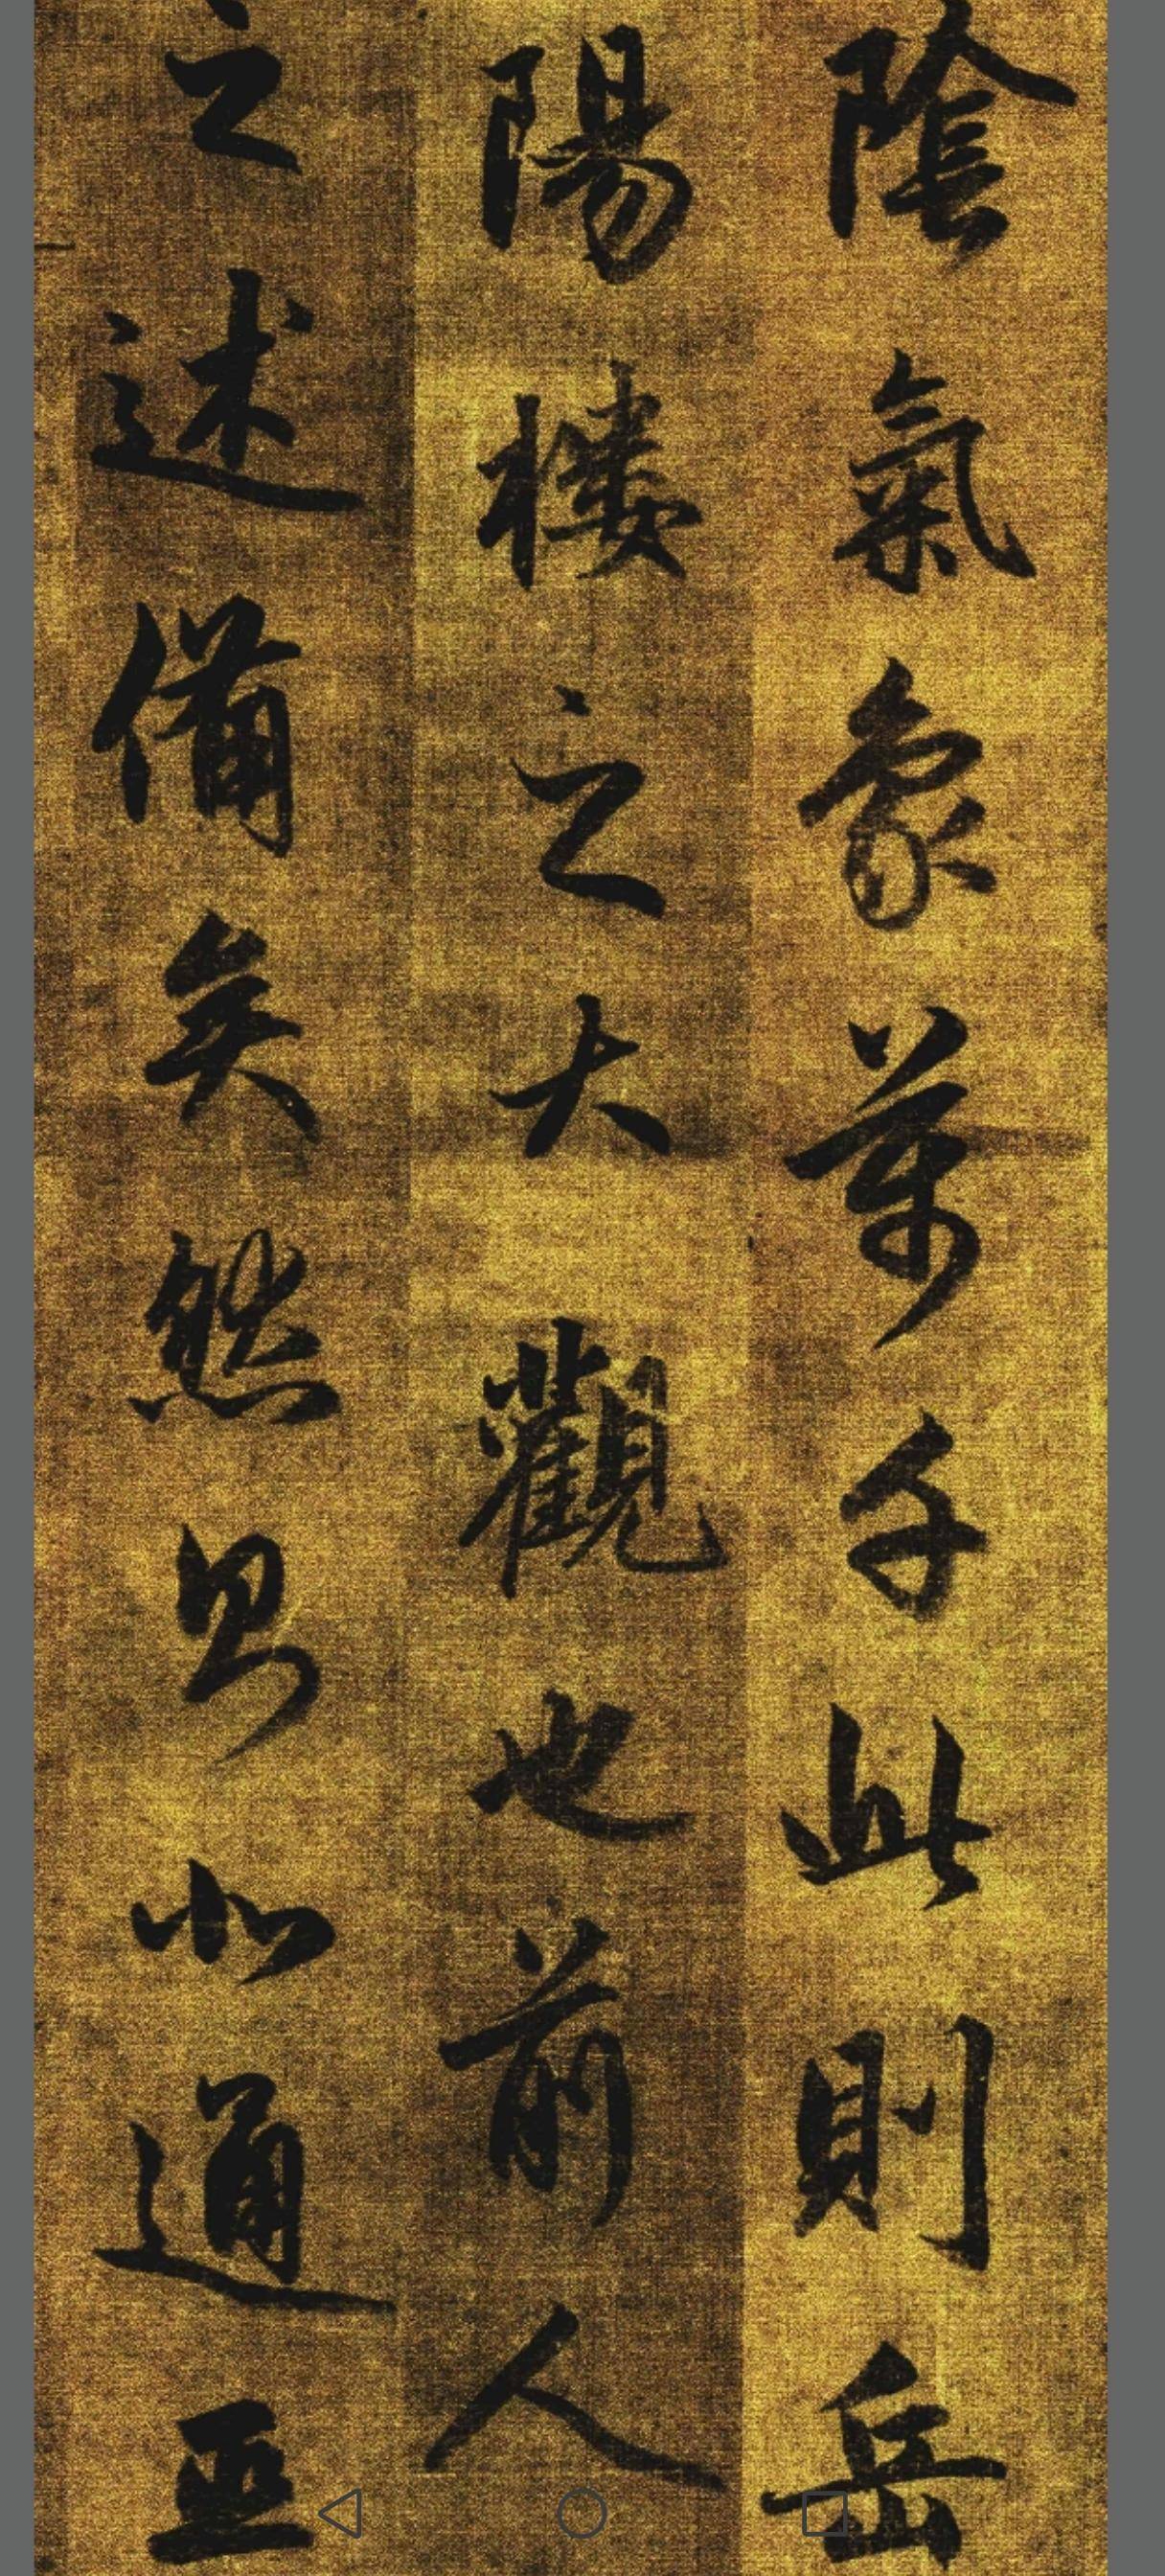 陰氣象萬千此則岳
陽樓之大觀也前人
之述備矣然則北通巫